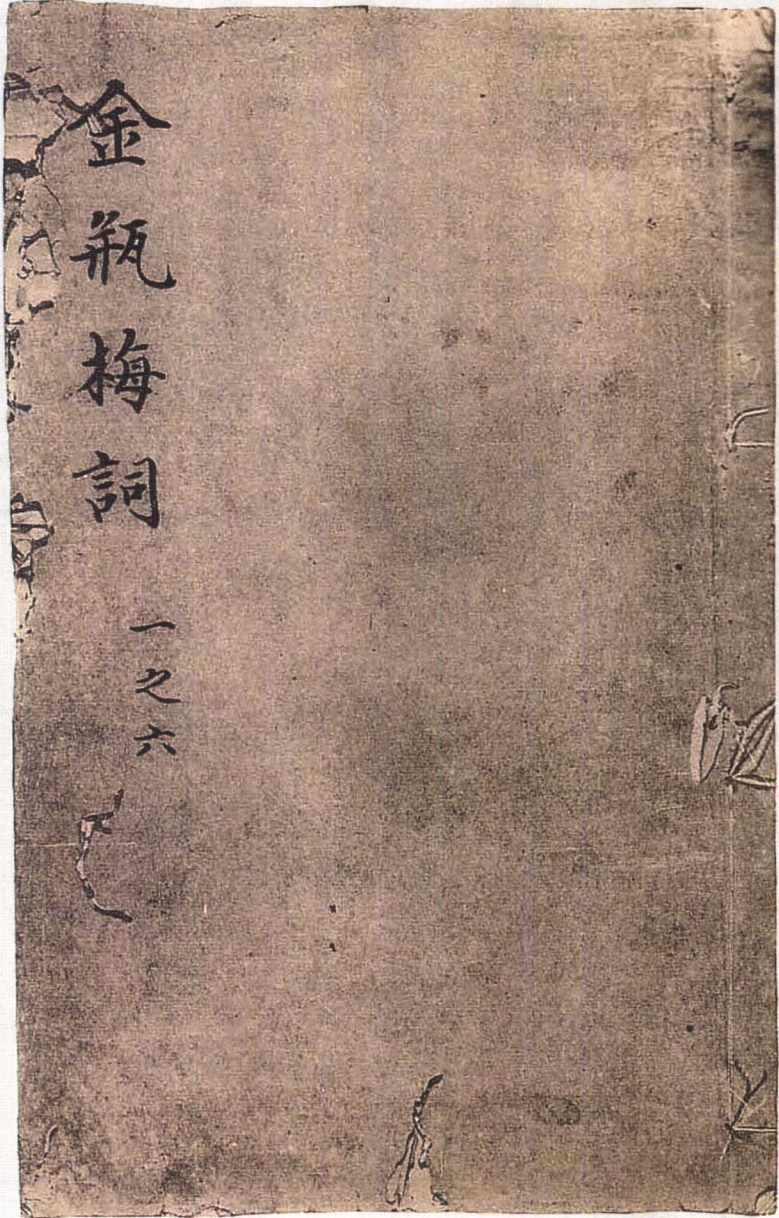 金瓶梅詞
一之六